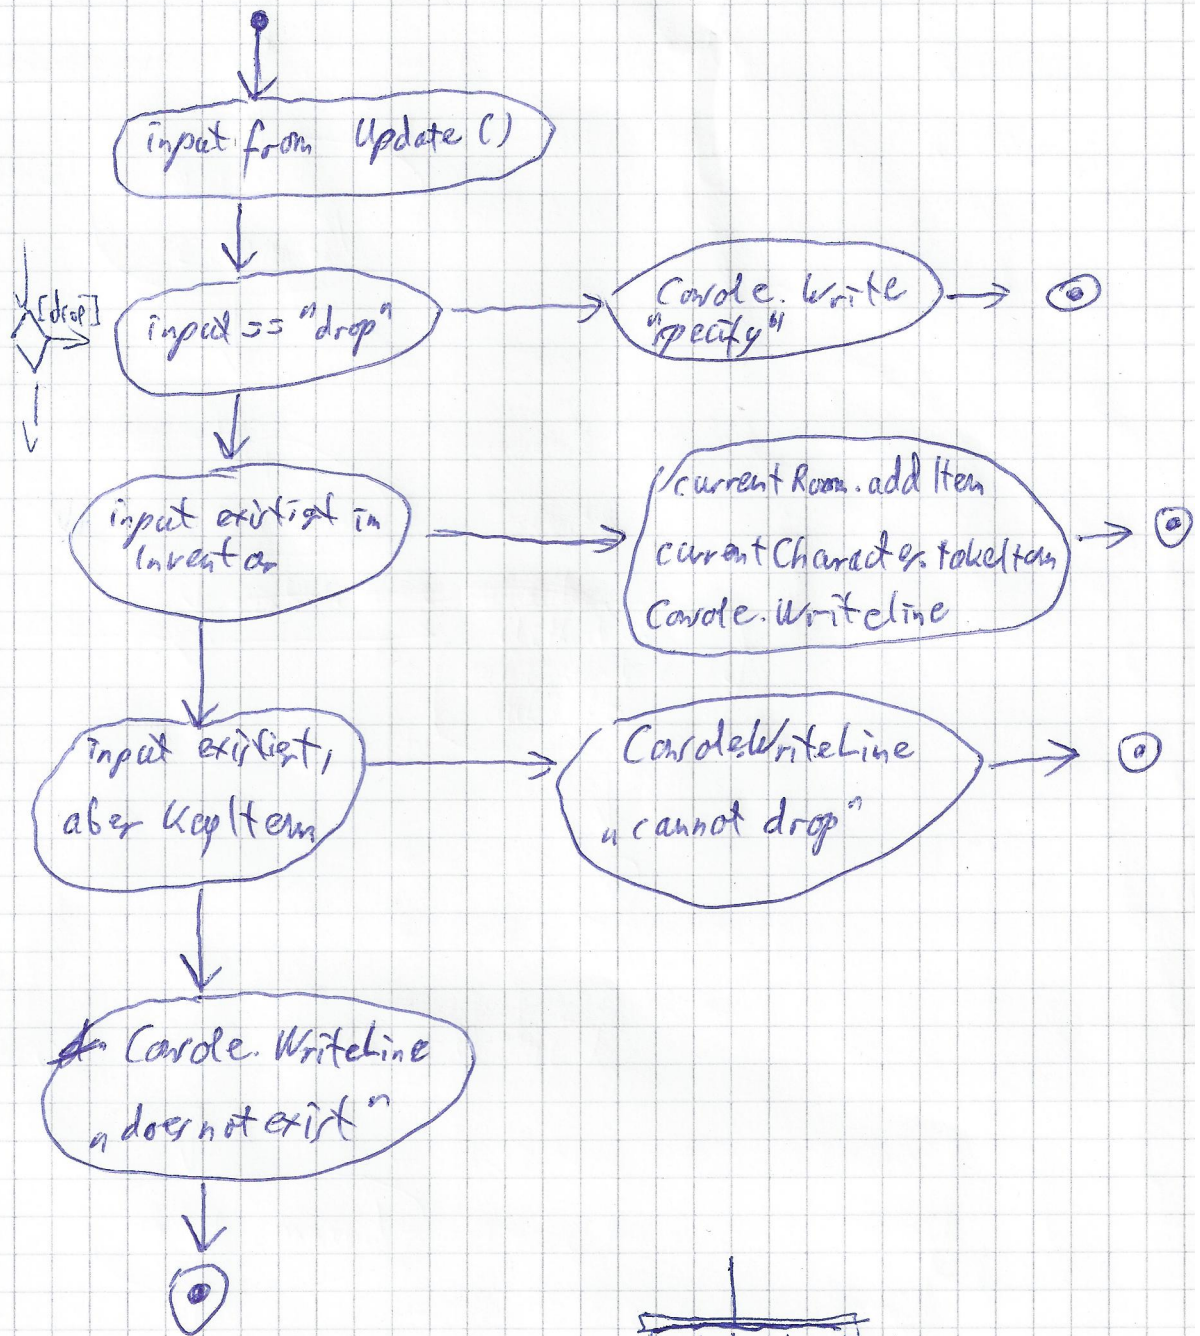 input from Update ()
[drop]
input == "drop"
Console. Write
"specify"
input existiert in
Inventar
currentRoom.addItem
currentCharacter.takeItem
Console.Writeline
input existiert,
aber KeyItem
Console.WriteLine
„cannot drop"
Console.WriteLine
„does not exist"